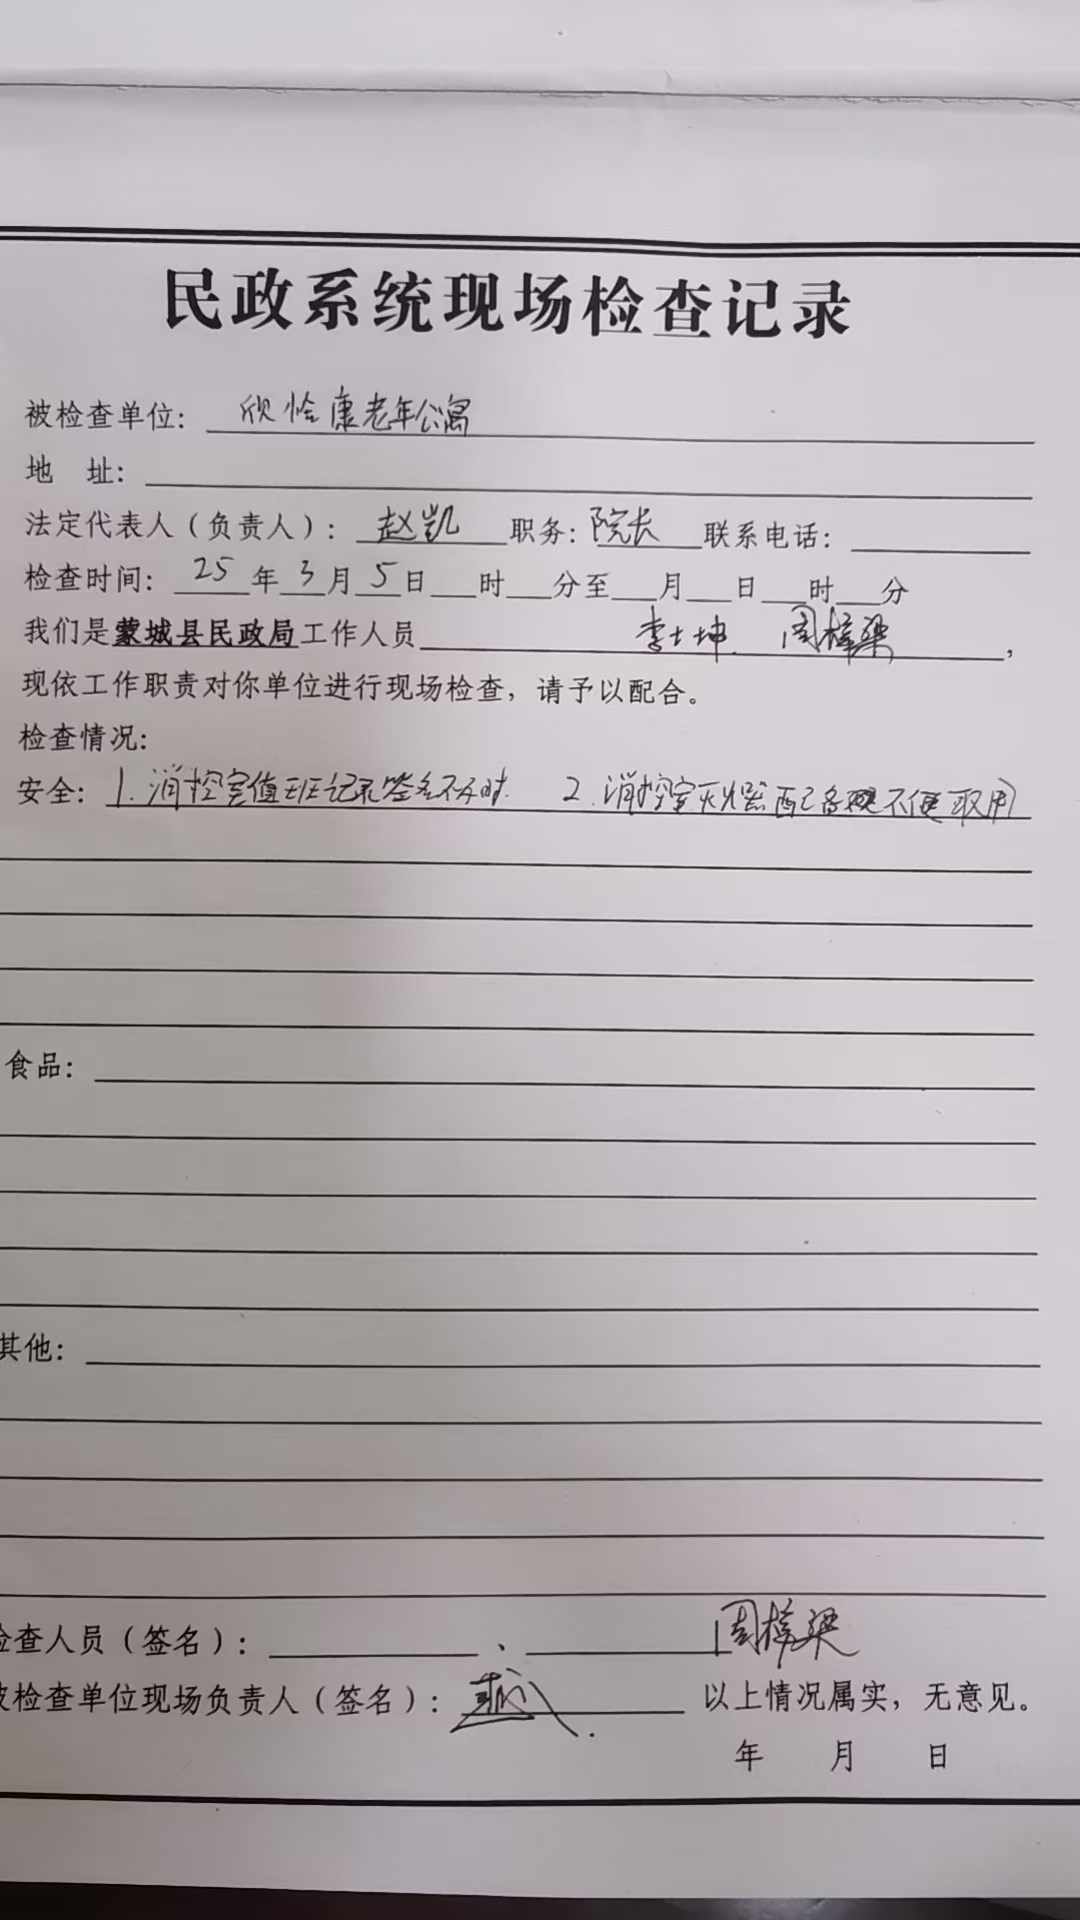 民政系统现场检查记录
被检查单位: 欣怡康老年公寓
地 址:
法定代表人(负责人): 赵凯 职务: 院长 联系电话:
检查时间: 25年3月5日 时 分至 月 日 时 分
我们是蒙城县民政局工作人员 李士坤 周樟梁,
现依工作职责对你单位进行现场检查,请予以配合。
检查情况:
安全: 1.消控室值班记录签名不及时. 2.消控室灭火器配备 不便取用
食品:
其他:
检查人员(签名): 、 周樟梁
被检查单位现场负责人(签名): 以上情况属实,无意见。
年 月 日